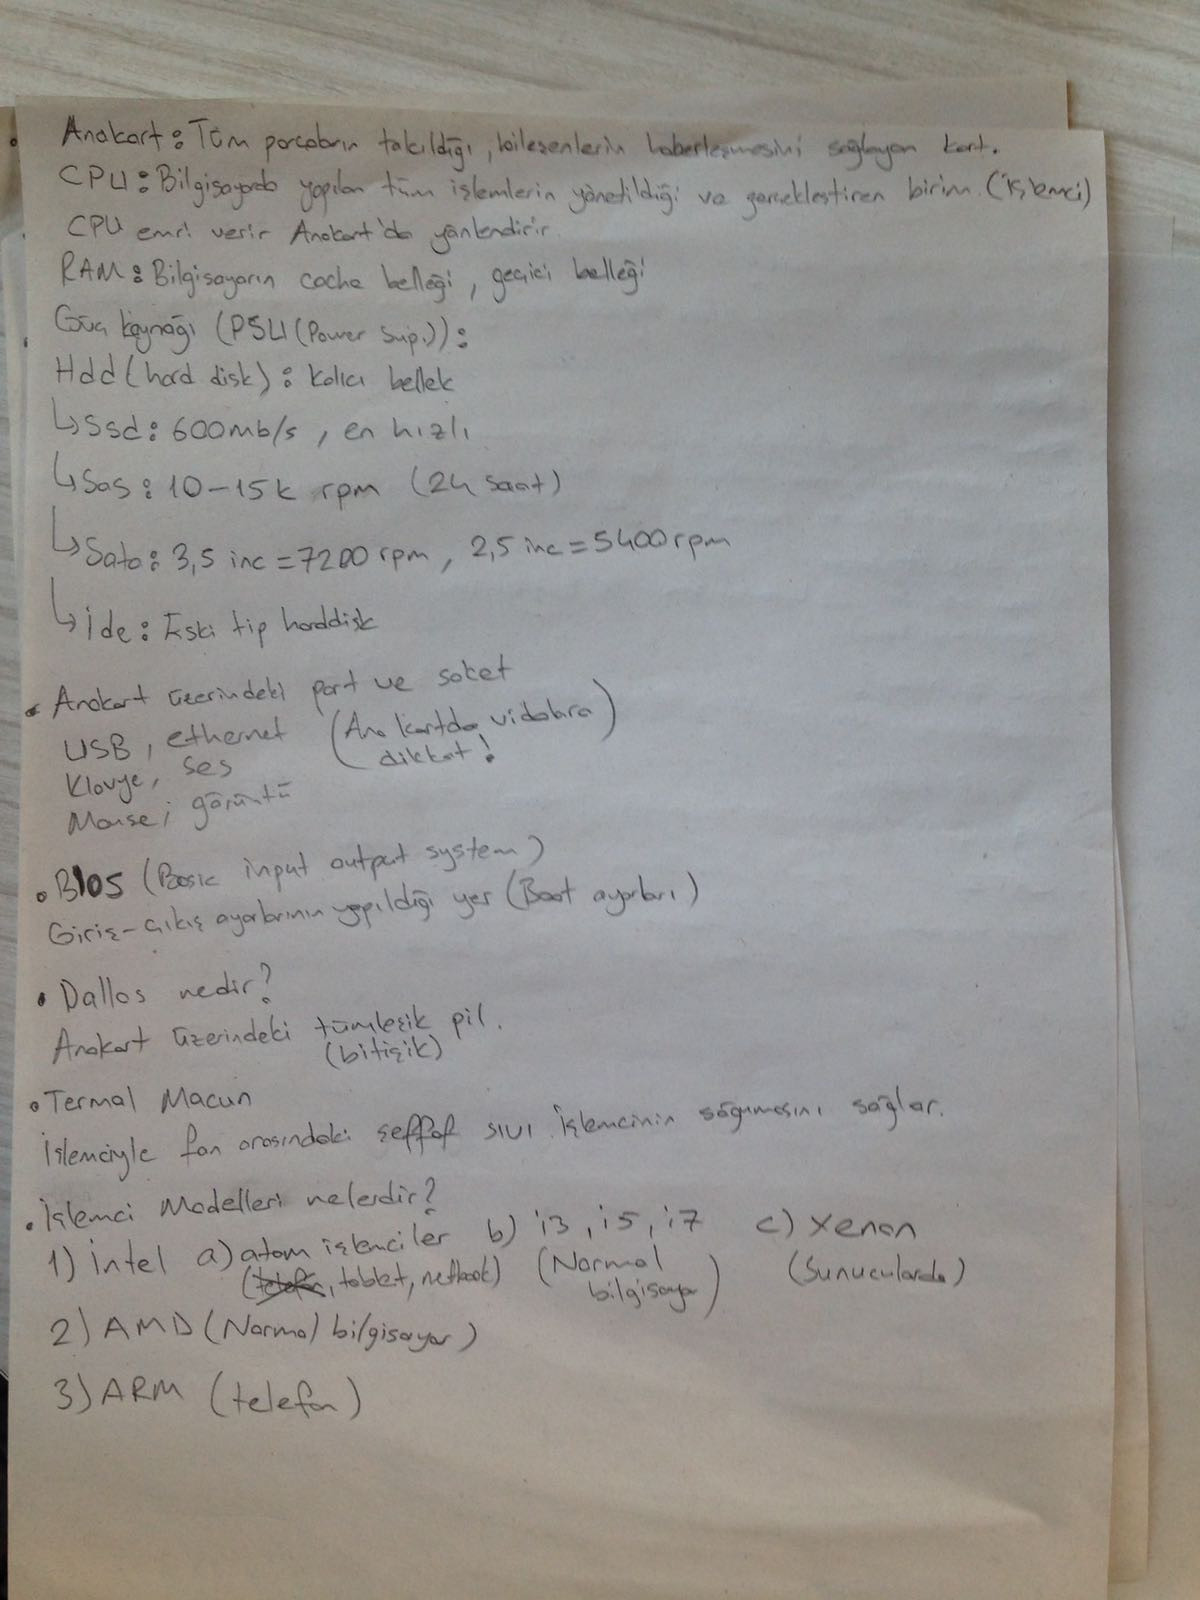 Anakart: Tüm parçaların takıldığı, bileşenlerin haberleşmesini sağlayan kart.
CPU: Bilgisayarda yapılan tüm işlemlerin yönetildiği ve gerçekleştiren birim. (İşlemci)
CPU emri verir Anakart'da yönlendirir.
RAM: Bilgisayarın cache belleği, geçici belleği
Güç kaynağı (PSU (Power Sup.)):
Hdd (hard disk): Kalıcı bellek
↳ Ssd: 600mb/s, en hızlı
↳ Sas: 10-15k rpm (24 saat)
↳ Sata: 3,5 inc = 7200 rpm, 2,5 inc = 5400 rpm
↳ İde: Eski tip harddisk
• Anakart üzerindeki port ve soket
USB, ethernet (Ana kartda vidalara
Klavye, ses dikkat!)
Mouse, görüntü
• BIOS (Basic input output system)
Giriş-çıkış ayarlarının yapıldığı yer (Boot ayarları)
• Dallos nedir?
Anakart üzerindeki tümleşik pil.
(bitişik)
• Termal Macun
İşlemciyle fan arasındaki şeffaf sıvı. İşlemcinin soğumasını sağlar.
• İşlemci Modelleri nelerdir?
1) İntel a) atom işlemciler b) i3, i5, i7 c) Xenon
(telefon, tablet, netbook) (Normal bilgisayar) (Sunucularda)
2) AMD (Normal bilgisayar)
3) ARM (telefon)